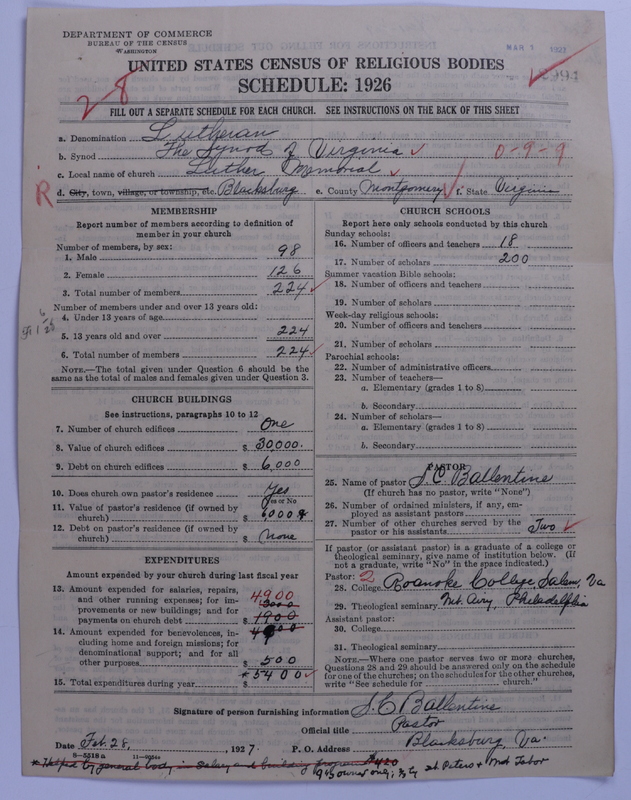 DEPARTMENT OF COMMERCE
BUREAU OF THE CENSUS
WASHINGTON
MAR 1 1927
UNITED STATES CENSUS OF RELIGIOUS BODIES
SCHEDULE: 1926
28
FILL OUT A SEPARATE SCHEDULE FOR EACH CHURCH. SEE INSTRUCTIONS ON THE BACK OF THIS SHEET
a. Denomination Lutheran
b. Synod The Synod of Virginia
0-9-9
c. Local name of church Luther Memorial
R
d. City, town, village, or township, etc. Blacksburg e. County Montgomery f. State Virginia
MEMBERSHIP
Report number of members according to definition of member in your church
Number of members, by sex:
1. Male 98
2. Female 126
3. Total number of members 224
Number of members under and over 13 years old:
4. Under 13 years of age
5. 13 years old and over 224
6. Total number of members 224
NOTE.—The total given under Question 6 should be the
same as the total of males and females given under Question 3.
CHURCH BUILDINGS
See instructions, paragraphs 10 to 12
7. Number of church edifices One
8. Value of church edifices $ 30,000.
9. Debt on church edifices $ 6,000
10. Does church own pastor's residence Yes
Yes or No
11. Value of pastor's residence (if owned by
church) $ 6000
12. Debt on pastor's residence (if owned by
church) $ None
EXPENDITURES
Amount expended by your church during last fiscal year
13. Amount expended for salaries, repairs,
and other running expenses; for im-
provements or new buildings; and for
payments on church debt $ 1900
4900
14. Amount expended for benevolences, in-
cluding home and foreign missions; for
denominational support; and for all
other purposes $ 500
15. Total expenditures during year $ *5400
CHURCH SCHOOLS
Report here only schools conducted by this church
Sunday schools:
16. Number of officers and teachers 18
17. Number of scholars 200
Summer vacation Bible schools:
18. Number of officers and teachers
19. Number of scholars
Week-day religious schools:
20. Number of officers and teachers
21. Number of scholars
Parochial schools:
22. Number of administrative officers
23. Number of teachers—
a. Elementary (grades 1 to 8)
b. Secondary
24. Number of scholars—
a. Elementary (grades 1 to 8)
b. Secondary
PASTOR
25. Name of pastor J. C. Ballentine
(If church has no pastor, write "None")
26. Number of ordained ministers, if any, em-
ployed as assistant pastors
27. Number of other churches served by the
pastor or his assistants Two
If pastor (or assistant pastor) is a graduate of a college or
theological seminary, give name of institution below. (If
not a graduate, write "No" in the space indicated.)
Pastor: 2
28. College Roanoke College, Salem, Va
29. Theological seminary Mt. Airy, Philadelphia
Assistant pastor:
30. College
31. Theological seminary
NOTE.—Where one pastor serves two or more churches,
Questions 28 and 29 should be answered only on the schedule
for one of the churches; on the schedules for the other churches,
write "See schedule for church."
Signature of person furnishing information J. C. Ballentine
Official title Pastor
Date Feb. 28, 1927. P. O. Address Blacksburg, Va.
8—5318 a
* Helped by general body in salary and building program $420